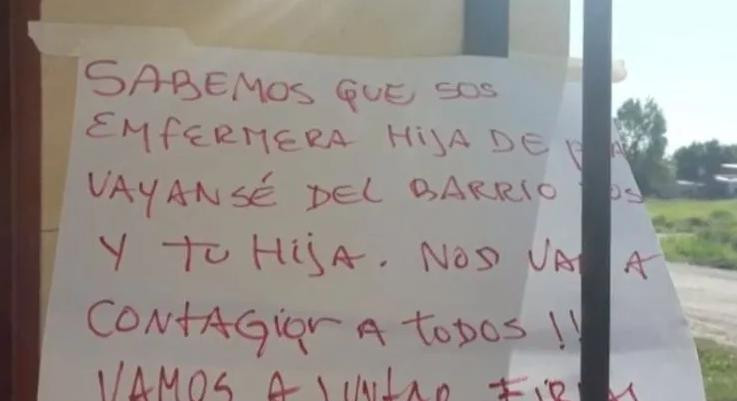 SABEMOS QUE SOS
EMFERMERA HIJA DE
VAYANSÉ DEL BARRIO
Y TU HIJA. NOS A
CONTAGIAR A TODOS !!
VAMOS A JUNTAR